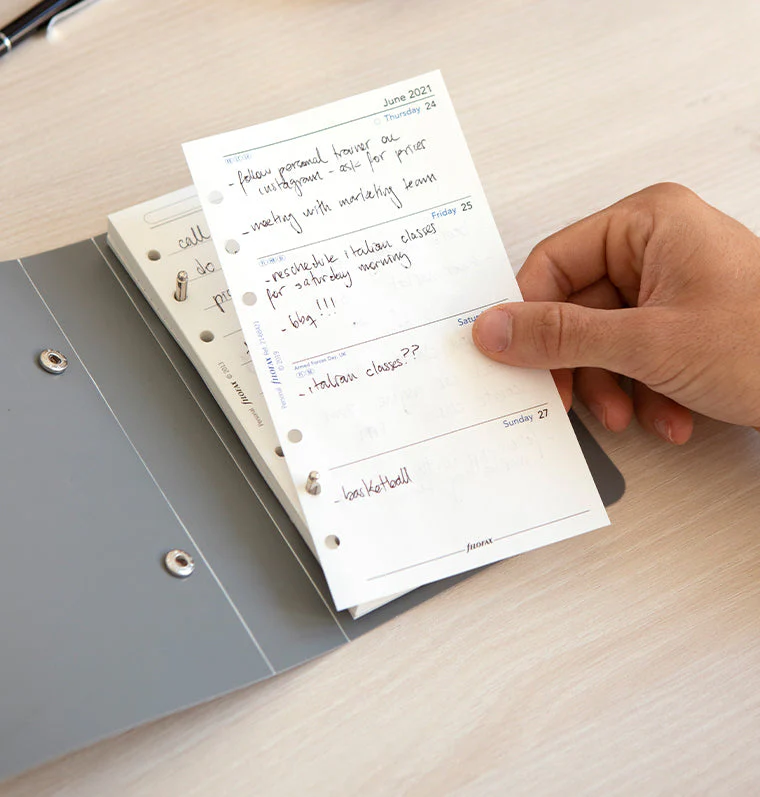 June 2021
Thursday 24
- follow personal trainer on
instagram - ask for prices
- meeting with marketing team
Friday 25
- reschedule italian classes
for saturday morning
- bbq!!!
Satu
Armed Forces Day, UK
- italian classes??
Sunday 27
- basketball
filofax
Personal filofax © 2019
call
do
Personal filofax © 2013